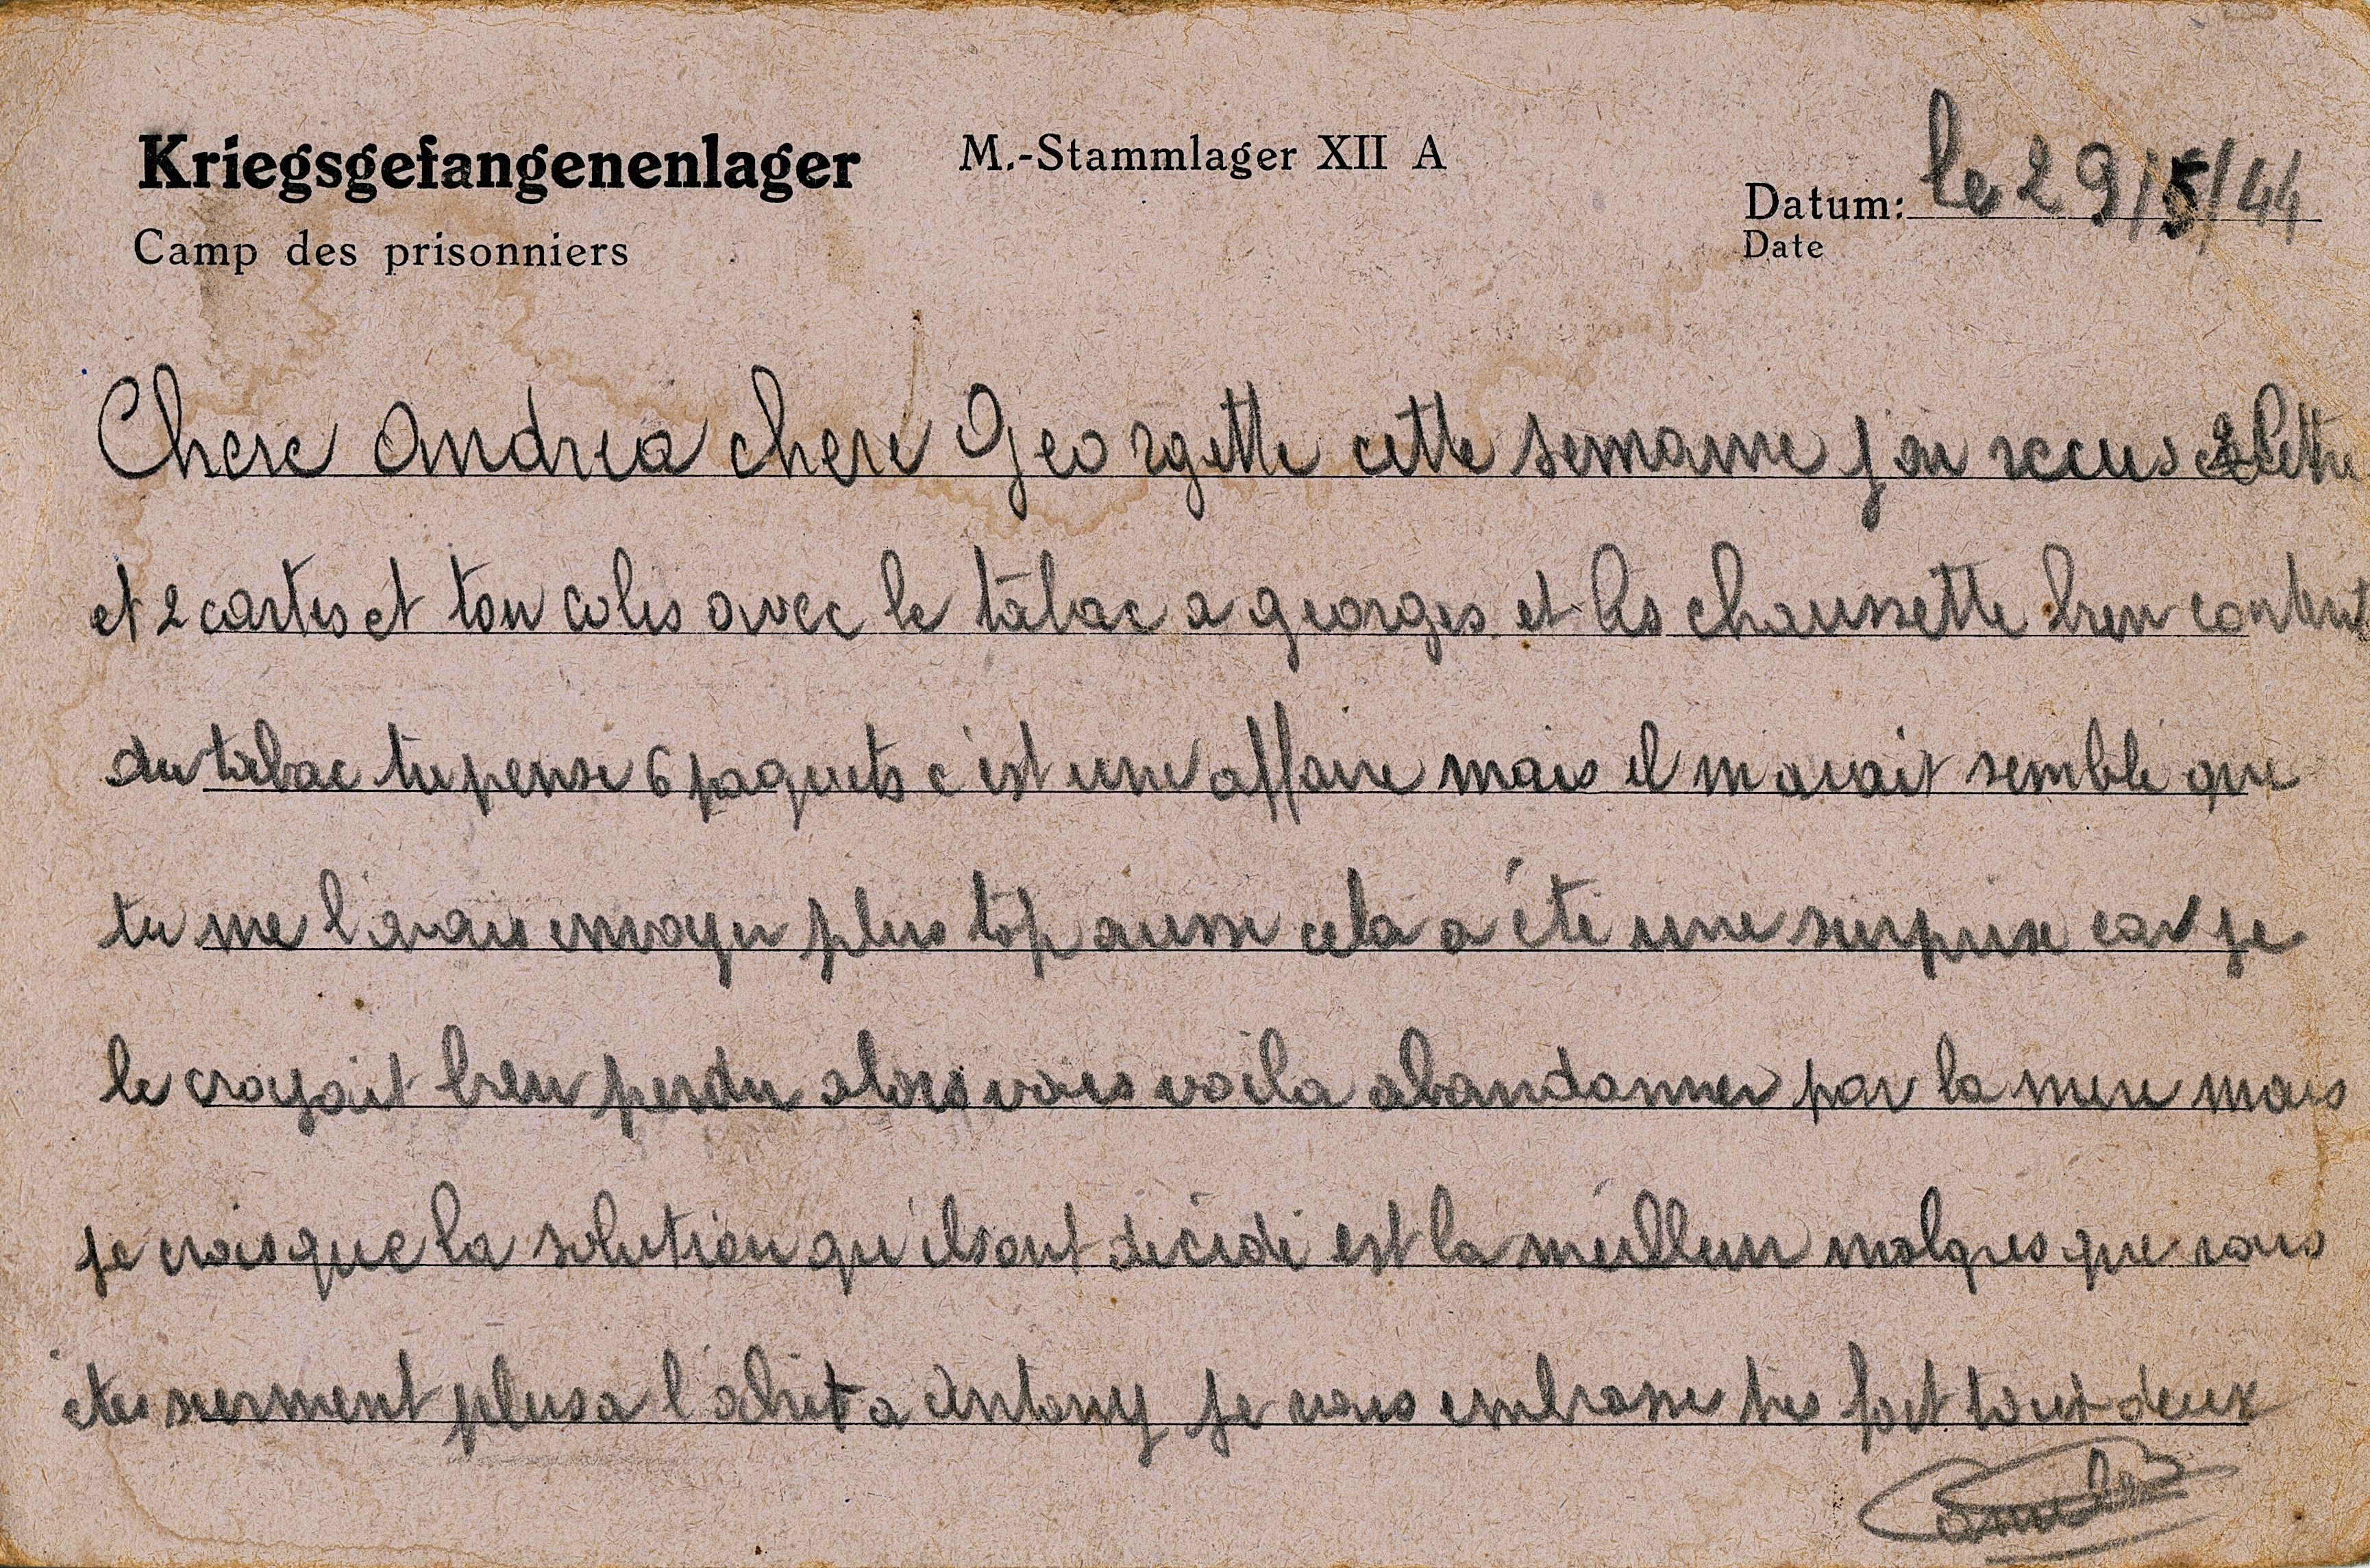 Kriegsgefangenenlager
M.-Stammlager XII A
Datum: le 29/5/44
Camp des prisonniers
Date
Chere Andrea chere Georgette cette semaine j'ai recus 2 lettre
et 2 cartes et ton colis avec le tabac a georges et les chaussette bien content
du tabac tu pense 6 paquets c'est une affaire mais il m'avait semblé que
tu me l'avais envoyer plus top aussi cela a été une surprise car je
le croyait bien perdu alors vous voila abandonner par la mere mais
je crois que la solution qu'ils ont décidé est la meilleur malgres que vous
etes surment plus a l'abrit a Antony je vous embrasse tres fort tout deux